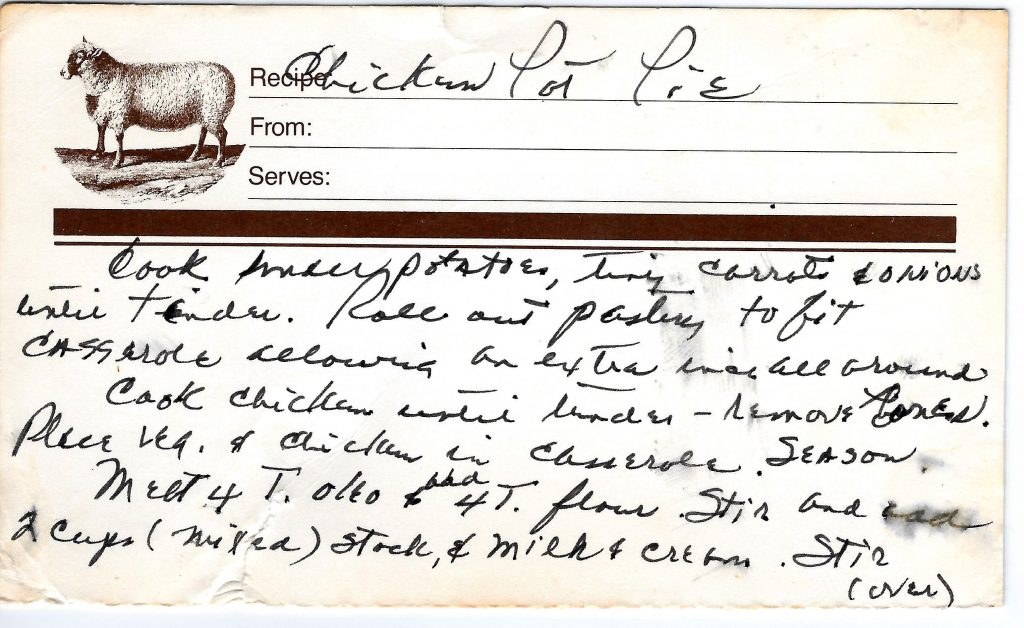 Recipe: Chicken Pot Pie
From:
Serves:
Cook potatoes, tiny carrots & onions
until tender. Roll out pastry to fit
casserole allowing an extra inch all around
Cook chicken until tender - remove bones.
Place veg. & chicken in casserole. Season.
Melt 4 T. oleo & add 4 T. flour. Stir and add
2 cups (mixed) stock, & milk & cream. Stir
(over)